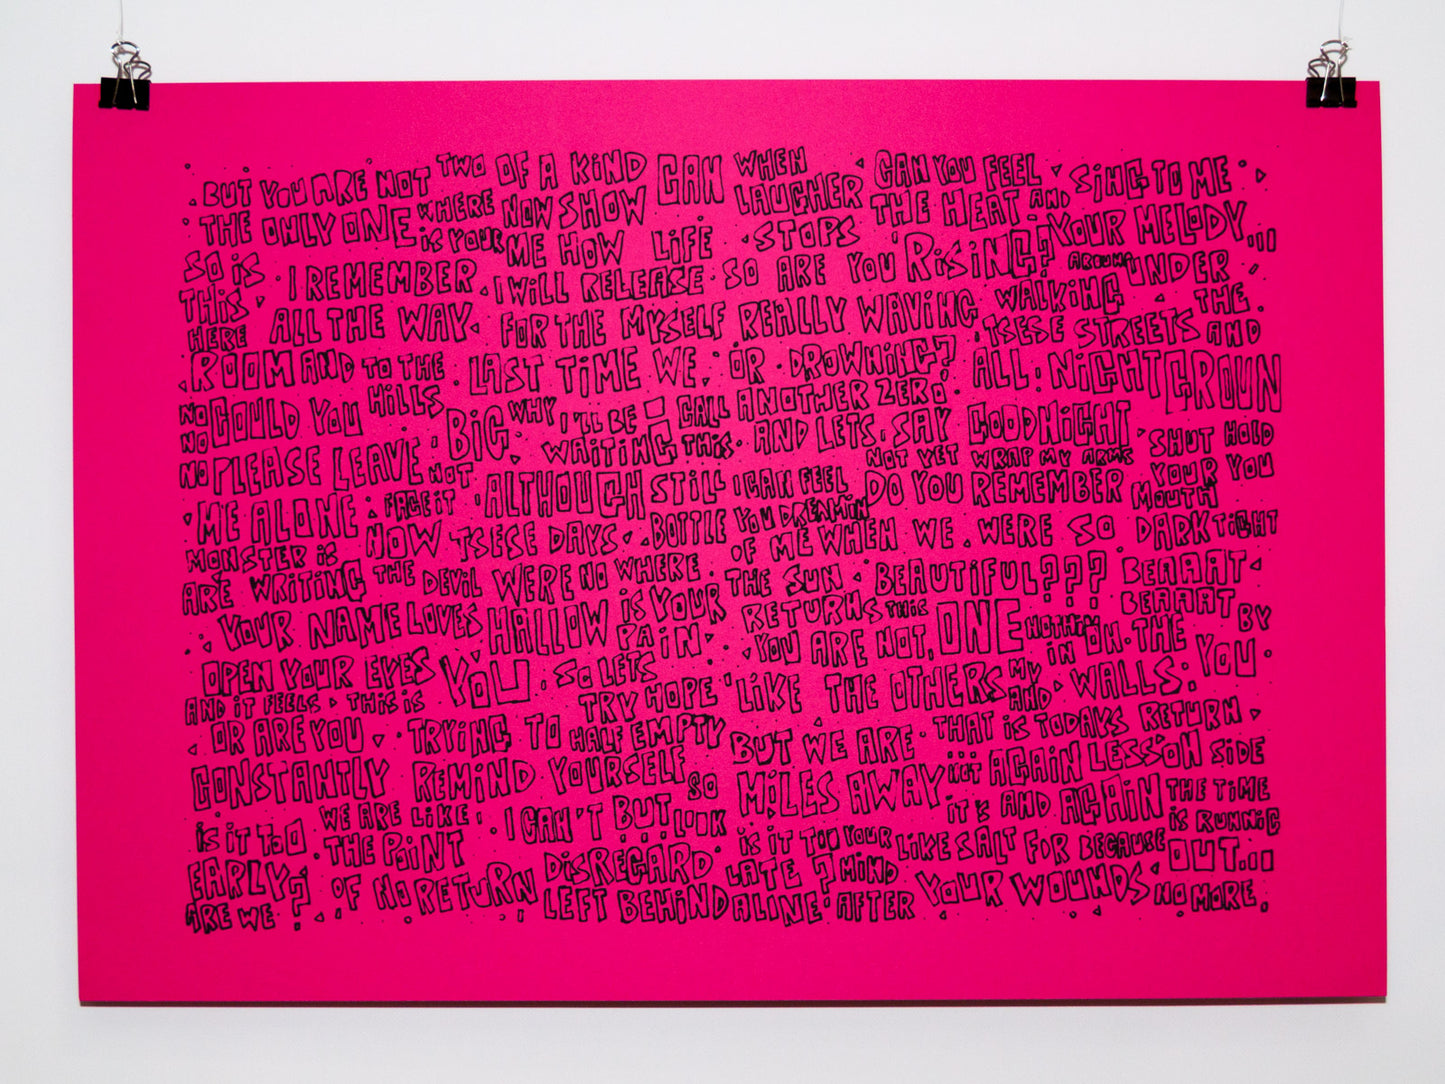 BUT YOU ARE NOT TWO OF A KIND CAN WHEN CAN YOU FEEL SING TO ME
THE ONLY ONE WHERE NOW SHOW LAUGHER THE HEAT AND YOUR MELODY...
SO IS IS YOUR ME HOW LIFE STOPS RISING? AROUND UNDER
THIS I REMEMBER I WILL RELEASE SO ARE YOU WALKING THE
HERE ALL THE WAY FOR THE MYSELF REALLY WAVING TSESE STREETS AND
ROOM AND TO THE LAST TIME WE OR DROWNING? ALL NIGHT GROUN
NO COULD YOU HILLS BIG WHY I'LL BE CALL ANOTHER ZERO
NO WAITING THIS AND LETS SAY GOODNIGHT SHUT HOLD
NO PLEASE LEAVE NOT STILL I CAN FEEL NOT YET WRAP MY ARMS YOUR YOU
ME ALONE FACE IT ALTHOUGH BOTTLE YOU DREAMIN DO YOU REMEMBER MOUTH
MONSTER IS NOW TSESE DAYS OF ME WHEN WE WERE SO DARK TIGHT
ARE WRITING THE DEVIL WERE NO WHERE THE SUN BEAUTIFUL??? BEAAAT
YOUR NAME LOVES HALLOW IS YOUR RETURNS THIS ONE BEAAAT BY
OPEN YOUR EYES YOU PAIN YOU ARE NOT, ON THE
AND IT FEELS THIS IS SO LETS LIKE THE OTHERS MY IN WALLS. YOU
OR ARE YOU TRYING TO TRY HOPE AND THAT IS TODAYS RETURN
HALF EMPTY BUT WE ARE AGAIN LESSON SIDE
CONSTANTLY REMIND YOURSELF SO MILES AWAY IT'S AND AGAIN THE TIME
IS IT TOO WE ARE LIKE I CAN'T BUT LOOK IS IT TOO YOUR LIKE SALT FOR BECAUSE IS RUNNIG
EARLY? THE POINT DISREGARD LATE? MIND OUT...
ARE WE OF NO RETURN LEFT BEHIND ALINE AFTER YOUR WOUNDS NO MORE.